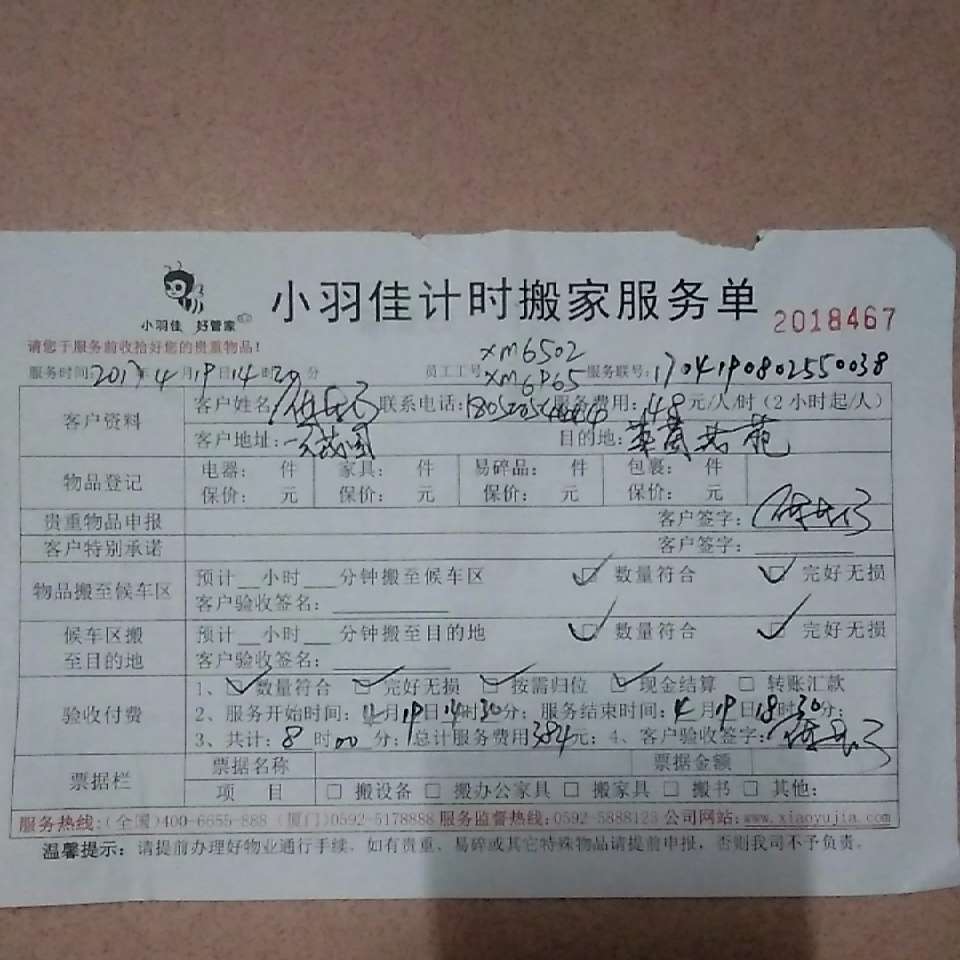 小羽佳 好管家
小羽佳计时搬家服务单
2018467
请您于服务前收拾好您的贵重物品!
XM6502
服务时间:2017年4月19日14时30分 员工工号:XM6P65 服务联号:1704190802550038
客户资料 客户姓名: 联系电话: 服务费用:48元/人/时(2小时起/人)
客户地址: 目的地:
物品登记 电器: 件 家具: 件 易碎品: 件 包裹: 件
保价: 元 保价: 元 保价: 元 保价: 元
贵重物品申报 客户签字:
客户特别承诺 客户签字:
物品搬至候车区 预计__小时___分钟搬至候车区 ☑ 数量符合 ☑ 完好无损
客户验收签名:
候车区搬至目的地 预计__小时___分钟搬至目的地 ☑ 数量符合 ☑ 完好无损
客户验收签名:
验收付费 1、☑数量符合 ☑完好无损 ☑按需归位 ☑现金结算 □ 转账汇款
2、服务开始时间:4月19日14时30分; 服务结束时间:4月19日18时30分;
3、共计:8时00分; 总计服务费用384元; 4、客户验收签字:
票据栏 票据名称 票据金额
项 目 □ 搬设备 □ 搬办公家具 □ 搬家具 □ 搬书 □ 其他:
服务热线:(全国)400-6655-888 (厦门)0592-5178888 服务监督热线:0592-5888123 公司网站:www.xiaoyujia.com
温馨提示:请提前办理好物业通行手续。如有贵重、易碎或其它特殊物品请提前申报,否则我司不予负责。